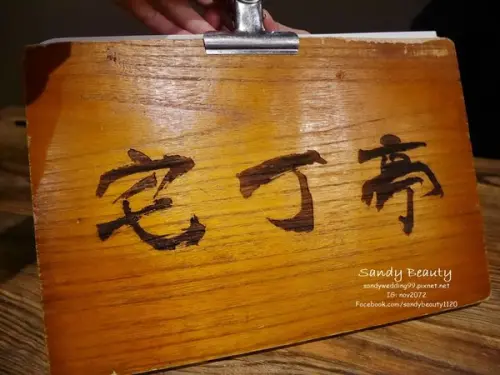 宅丁亭
Sandy Beauty
sandywedding99.pixnet.net
IG: nov2072
Facebook.com/sandybeauty1120